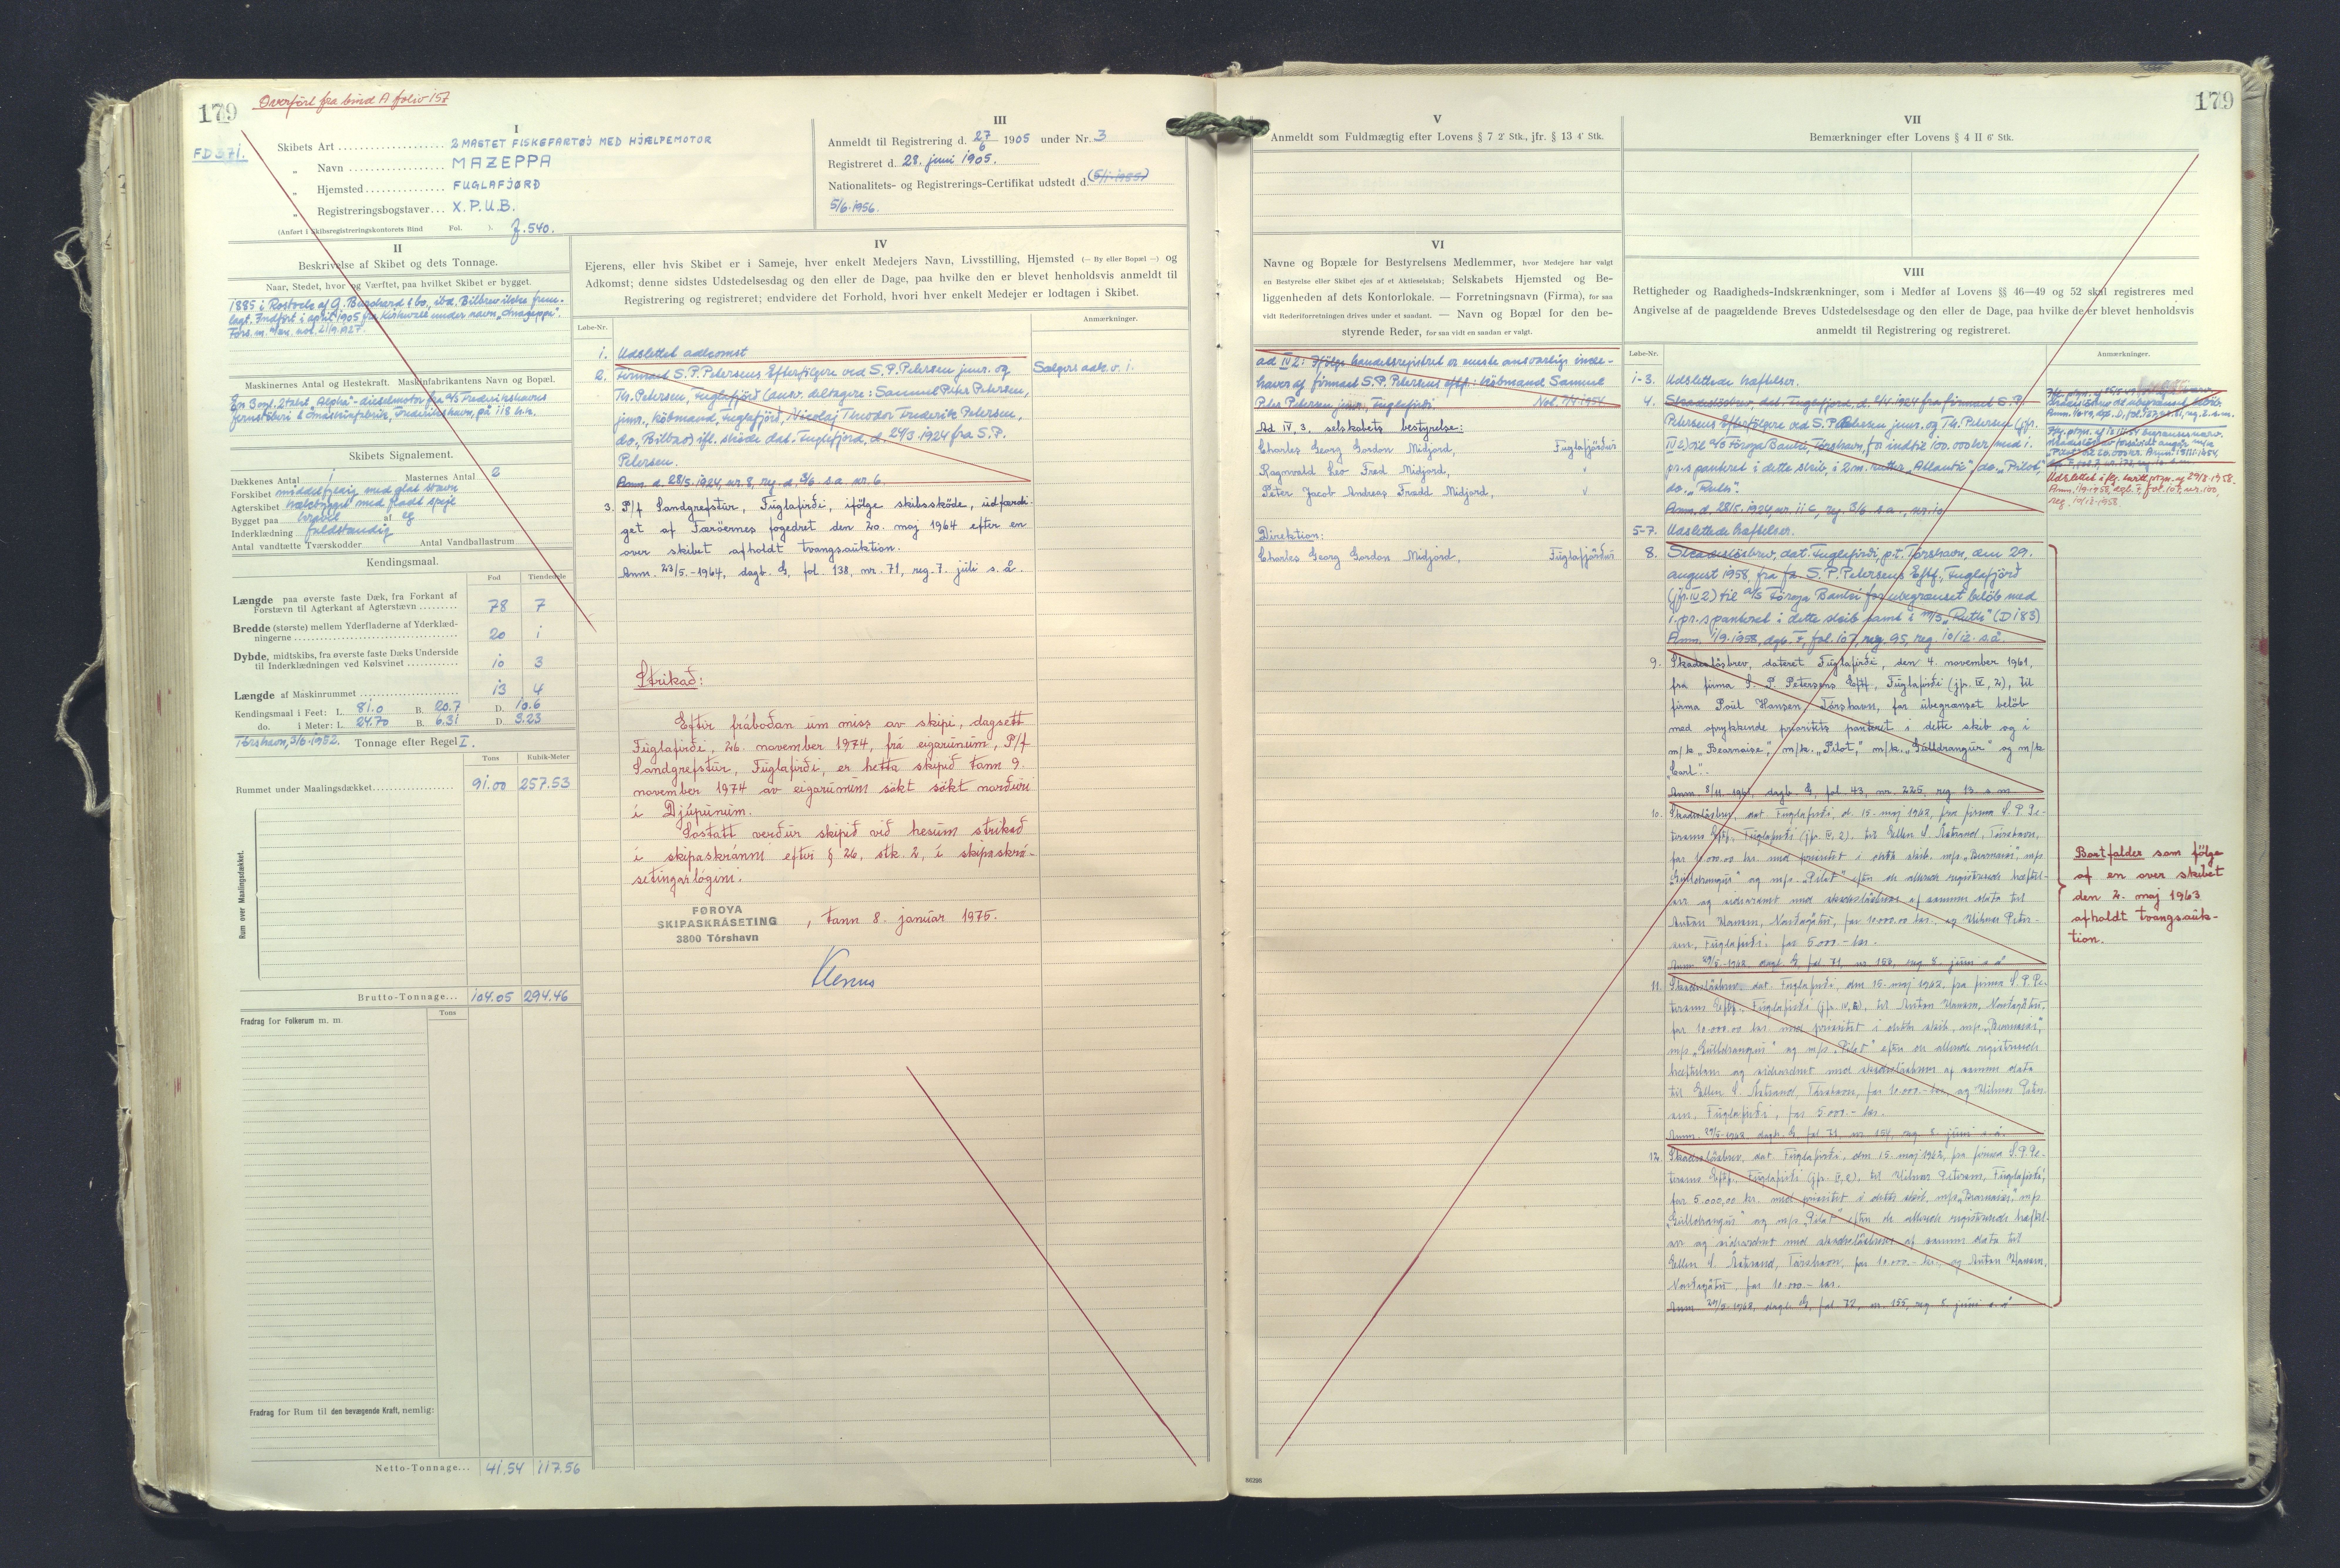 179
Overført fra bind A folio 157
FD 371.
I
Skibets Art 2 MASTET FISKEFARTØJ MED HJÆLPEMOTOR
„ Navn MAZEPPA
„ Hjemsted FUGLAFJØRÐ
„ Registreringsbogstaver... X.P.U.B.
(Anført i Skibsregistreringskontorets Bind Fol. ). f. 540.
III
Anmeldt til Registrering d. 27/6 1905 under Nr. 3
Registreret d. 28. juni 1905.
Nationalitets- og Registrerings-Certifikat udstedt d.
5/6 1956.
II
Beskrivelse af Skibet og dets Tonnage.
Naar, Stedet, hvor og Værftet, paa hvilket Skibet er bygget.
1885 i Rostock af
lagt. Indført i april 1905 fra Kirkwall under navn
Maskinernes Antal og Hestekraft. Maskinfabrikantens Navn og Bopæl.
En 3 cyl. 2 takt „Alpha"-dieselmotor fra A/S Frederikshavns
Jernstøberi & Maskinfabrik, Frederikshavn, på 118 h.k.
Skibets Signalement.
Dækkenes Antal 1 Masternes Antal 2
Forskibet middelfyldig med glat stævn
Agterskibet hælebygget med fladt spejl
Bygget paa kravel af eg
Inderklædning fuldstændig
Antal vandtætte Tværskodder Antal Vandballastrum
Kendingsmaal.
Fod Tiendedele
Længde paa øverste faste Dæk, fra Forkant af
Forstævn til Agterkant af Agterstævn 78 7
Bredde (største) mellem Yderfladerne af Yderklæd-
ningerne 20 1
Dybde, midtskibs, fra øverste faste Dæks Underside
til Inderklædningen ved Kølsvinet 10 3
Længde af Maskinrummet 13 4
Kendingsmaal i Feet: L. 81.0 B. 20.7 D. 10.6
do. i Meter: L. 24.70 B. 6.31 D. 3.23
Tórshavn, 3/6-1952. Tonnage efter Regel I.
Tons Kubik-Meter
Rummet under Maalingsdækket 91.00 257.53
Rum over Maalingsdækket.
Brutto-Tonnage... 104.05 294.46
Tons
Fradrag for Folkerum m. m.
Fradrag for Rum til den bevægende Kraft, nemlig:
Netto-Tonnage... 41.54 117.56
IV
Ejerens, eller hvis Skibet er i Sameje, hver enkelt Medejers Navn, Livsstilling, Hjemsted (— By eller Bopæl —) og
Adkomst; denne sidstes Udstedelsesdag og den eller de Dage, paa hvilke den er blevet henholdsvis anmeldt til
Registrering og registreret; endvidere det Forhold, hvori hver enkelt Medejer er lodtagen i Skibet.
Løbe-Nr. Anmærkninger.
1. Udslettet adkomst
2. Firmaet S.P. Petersens Efterfølgere ved S.P. Petersen junr. og Sælgers adk. v. 1.
Th. Petersen, Fuglefjord (ansv. deltagere: Samuel Peter Petersen,
junr, købmand, Fuglefjord, Nicolaj Theodor Frederik Petersen,
do, Bilbao) ifl. skøde dat. Fuglefjord, d. 24/3 1924 fra S.P.
Petersen.
Anm. d. 28/5 1924, nr. 8, reg. d. 3/6 s.a. nr. 6.
3. P/f Sandgrefstur, Fuglafirði, ifølge skibsskøde, udfærdi-
get af Færøernes fogedret den 20. maj 1964 efter en
over skibet afholdt tvangsauktion.
Anm. 23/5.-1964, dagb. G, fol. 138, nr. 71, reg. 7. juli s.å.
Strikað:
Eftir fráboðan um miss av skipi, dagsett
Fuglafirði, 26. november 1974, frá eigarunum, P/f
Sandgrefstur, Fuglafirði, er hetta skipið tann 9.
november 1974 av eigarunum søkt søkt norðuri
í Djúpunum.
Sostatt verður skipið við hesum strikað
í skipaskránni eftir § 26, stk. 2, í skipaskrá-
setingarlógini.
FØROYA
SKIPASKRÁSETING
3800 Tórshavn
, tann 8. januar 1975.
179
V
Anmeldt som Fuldmægtig efter Lovens § 7 2' Stk., jfr. § 13 4' Stk.
VII
Bemærkninger efter Lovens § 4 II 6' Stk.
VI
Navne og Bopæle for Bestyrelsens Medlemmer, hvor Medejere har valgt
en Bestyrelse eller Skibet ejes af et Aktieselskab; Selskabets Hjemsted og Be-
liggenheden af dets Kontorlokale. — Forretningsnavn (Firma), for saa
vidt Rederiforretningen drives under et saadant. — Navn og Bopæl for den be-
styrende Reder, for saa vidt en saadan er valgt.
ad IV 2: Ifølge handelsregistret er eneste ansvarlige inde-
haver af firmaet S.P. Petersens eftf.: købmand Samuel
Peter Petersen junr., Fuglefirði. Not. 7/4 1954
Ad IV, 3, selskabets bestyrelse:
Charles Georg Gordon Midjord, Fuglafjørður
Ragnvald Leo Fradd Midjord, "
Peter Jacob Andreas Fradd Midjord, "
Direktion:
Charles Georg Gordon Midjord, Fuglafjørður
VIII
Rettigheder og Raadigheds-Indskrænkninger, som i Medfør af Lovens §§ 46—49 og 52 skal registreres med
Angivelse af de paagældende Breves Udstedelsesdag og den eller de Dage, paa hvilke de er blevet henholdsvis
anmeldt til Registrering og registreret.
Løbe-Nr. Anmærkninger.
1-3. Udslettede hæftelser.
4. Skadesløsbrev, dat. Fuglefjord, d. 2/4 1924 fra firmaet S.P.
Petersens Efterfølgere ved S.P. Petersen junr. og Th. Petersen (jfr.
IV 2) til A/S Føroya Banki, Tórshavn, for indtil 100.000 kr. med 1.
pr.s panteret i dette skib, i 2 m. kutter „Atlantic", do. „Pilot",
do. „Ruth".
Anm. d. 28/5 1924 nr. 11 c, reg. 3/6 s.a., nr. 10
Udslettet iflg. kvitt. ptgn. af 29/8 1958.
Anm. 1/9 1958, dgb. F, fol. 107, nr. 100,
reg. 10/12 1958.
5-7. Udslettede hæftelser.
8. Skadesløsbrev, dat. Fuglefirði p.t. Tórshavn, den 29.
august 1958, fra fa. S.P. Petersens Eftf., Fuglafjørð
(jfr. IV 2) til A/S Føroya Banki for ubegrænset beløb med
1. pr.s panteret i dette skib samt i m/s „Ruth" (D 183)
Anm. 1/9 1958, dgb. F, fol. 107, reg. 95, reg. 10/12 s.å.
9. Skadesløsbrev, dateret Fuglafirði, den 4. november 1961,
fra firma S. P. Petersens Eftf., Fuglafirði (jfr. IV, 2), til
firma Poul Hansen, Tórshavn, for ubegrænset beløb
med oprykkende prioritets panteret i dette skib og i
m/k „Bearnaise", m/k. „Pilot", m/k. „Gulldrangur" og m/k
„Carl".
Anm. 8/11.-1961, dagb. G, fol. 43, nr. 225, reg. 13. s.m.
10. Skadesløsbrev, dat. Fuglafirði, d. 15. maj 1962, fra firma S.P. Pe-
tersens Eftf., Fuglafirði (jfr. IV, 2), til Ellen S. Åstrand, Tórshavn,
for 10.000.00 kr. med prioritet i dette skib, m/s „Bearnaise", m/s
„Gulldrangur" og m/s „Pilot" efter de allerede registrerede hæftel-
ser og sideordnet med skadesløsbreve af samme dato til
Anton Hansen, Norðagøtu, for 10.000.00 kr., og Hilmar Peter-
sen, Fuglafirði, for 5.000.- kr.
Anm. 29/5-1962, dagb. G, fol. 71, nr. 153, reg. 8. juni s.å.
11. Skadesløsbrev, dat. Fuglafirði, den 15. maj 1962, fra firma S.P. Pe-
tersens Eftf., Fuglafirði (jfr. IV, 2), til Anton Hansen, Norðagøtu,
for 10.000.00 kr. med prioritet i dette skib, m/s „Bearnaise",
m/s „Gulldrangur" og m/s „Pilot" efter de allerede registrerede
hæftelser og sideordnet med skadesløsbreve af samme dato
til Ellen S. Åstrand, Tórshavn, for 10.000.- kr., og Hilmar Peter-
sen, Fuglafirði, for 5.000.- kr.
Anm. 29/5-1962, dagb. G, fol. 71, nr. 154, reg. 8. juni s.å.
12. Skadesløsbrev, dat. Fuglafirði, den 15. maj 1962, fra firma S.P. Pe-
tersens Eftf., Fuglafirði (jfr. IV, 2), til Hilmar Petersen, Fuglafirði,
for 5.000,00 kr. med prioritet i dette skib, m/s „Bearnaise", m/s
„Gulldrangur" og m/s „Pilot" efter de allerede registrerede hæftel-
ser og sideordnet med skadesløsbreve af samme dato til
Ellen S. Åstrand, Tórshavn, for 10.000.- kr., og Anton Hansen,
Norðagøtu, for 10.000.- kr.
Anm. 29/5-1962, dagb. G, fol. 72, nr. 155, reg. 8. juni s.å.
Bortfalder som følge
af en over skibet
den 2. maj 1963
afholdt tvangsauk-
tion.